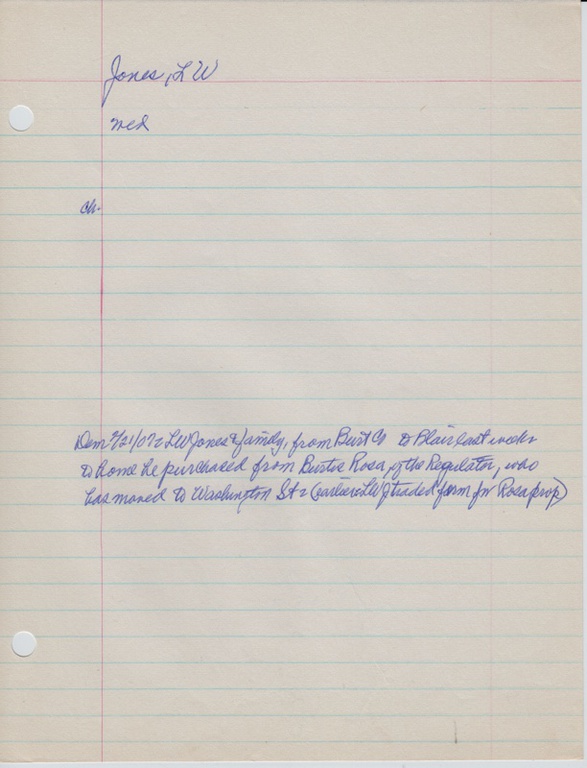 Jones, L W
med
ch.
Dem 2/21/07: LW Jones & family, from Burt Co to Blair last week
to home he purchased from Burtis Rosa, of the Regulator, who
has moved to Washington St: (earlier LWJ traded farm for Rosa prop)